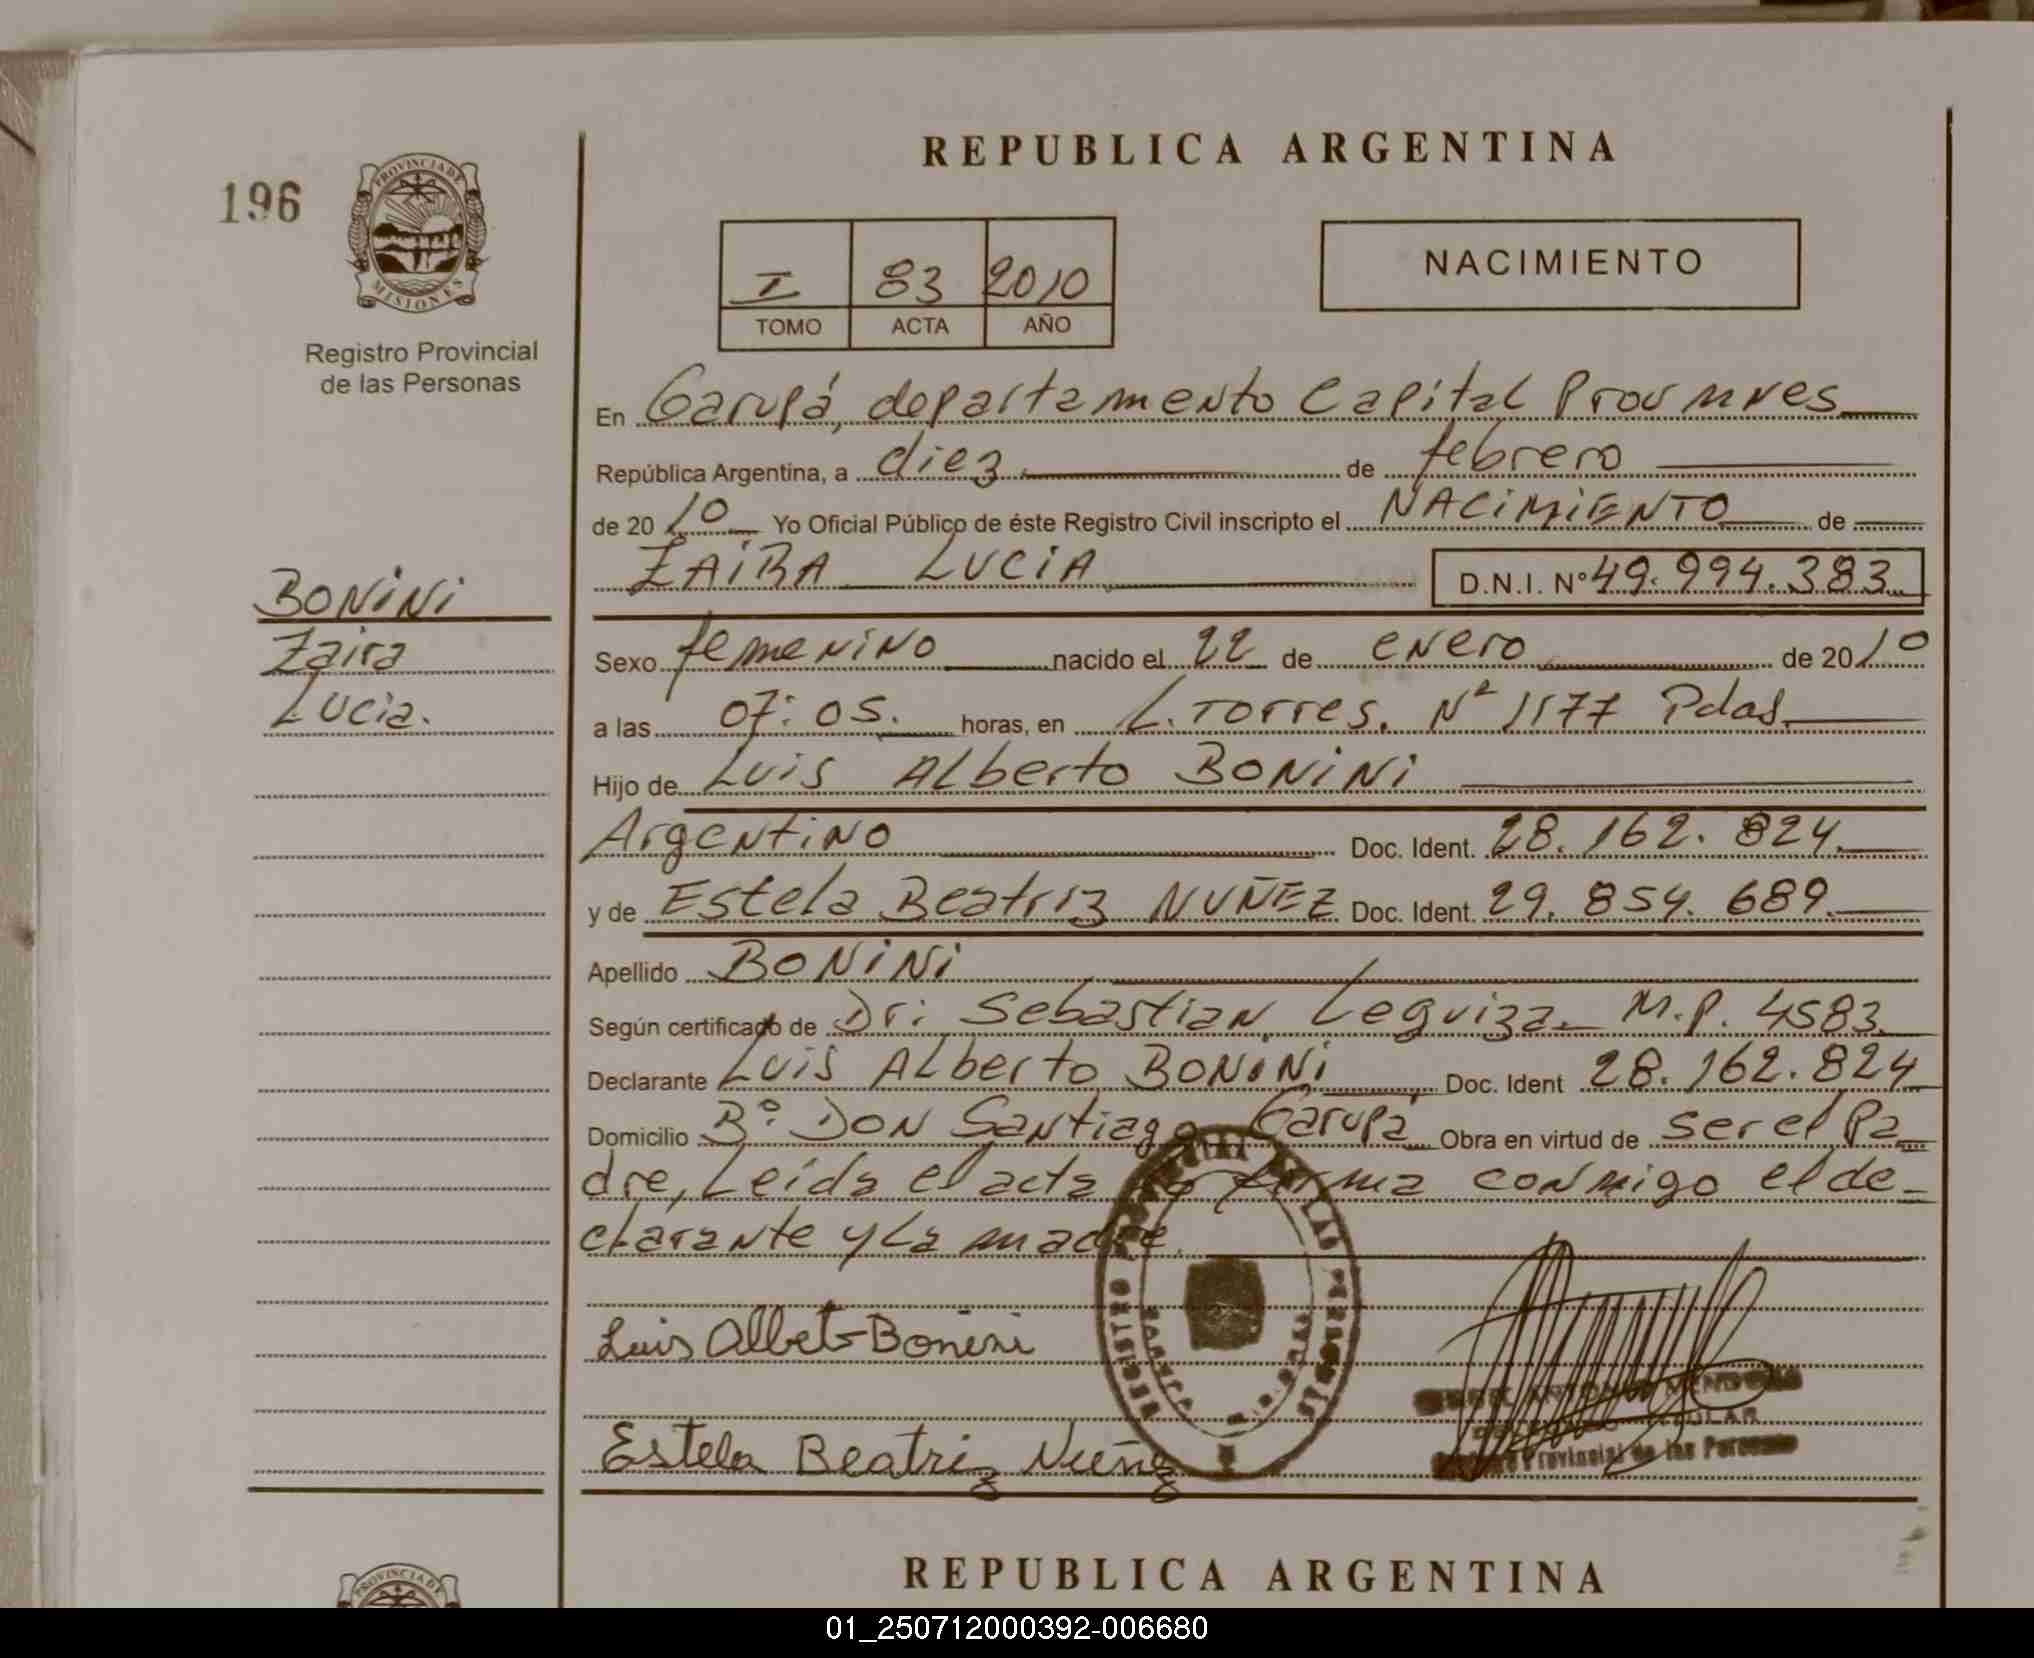 REPUBLICA ARGENTINA
196
PROVINCIA DE
MISIONES
Registro Provincial
de las Personas
I 83 2010
TOMO ACTA AÑO
NACIMIENTO
En Garupá, departamento Capital Prov Mnes
República Argentina, a diez de febrero
de 2010 Yo Oficial Público de éste Registro Civil inscripto el NACIMIENTO de
ZAIRA LUCIA D.N.I. Nº 49.994.383
BONINI
Zaira
Lucia.
Sexo femenino nacido el 22 de enero de 2010
a las 07:05. horas, en L. Torres. Nº 1177 Pdas.
Hijo de Luis Alberto BONINI
Argentino Doc. Ident. 28.162.824.
y de Estela Beatriz NUÑEZ Doc. Ident. 29.854.689.
Apellido BONINI
Según certificado de Dr: Sebastian Leguiza- M.P. 4583
Declarante Luis Alberto BONINI Doc. Ident 28.162.824
Domicilio Bº: DON Santiago Garupá Obra en virtud de ser el Pa
dre, Leida el acta la firma conmigo el de-
clarante y La madre.
Luis Alberto Bonini
Estela Beatriz Nuñez
REGISTRO PROVINCIAL DE LAS PERSONAS
GARUPA
MISIONES
ANTONIO
TITULAR
Provincial de las Personas
REPUBLICA ARGENTINA
PROVINCIA DE
01_250712000392-006680